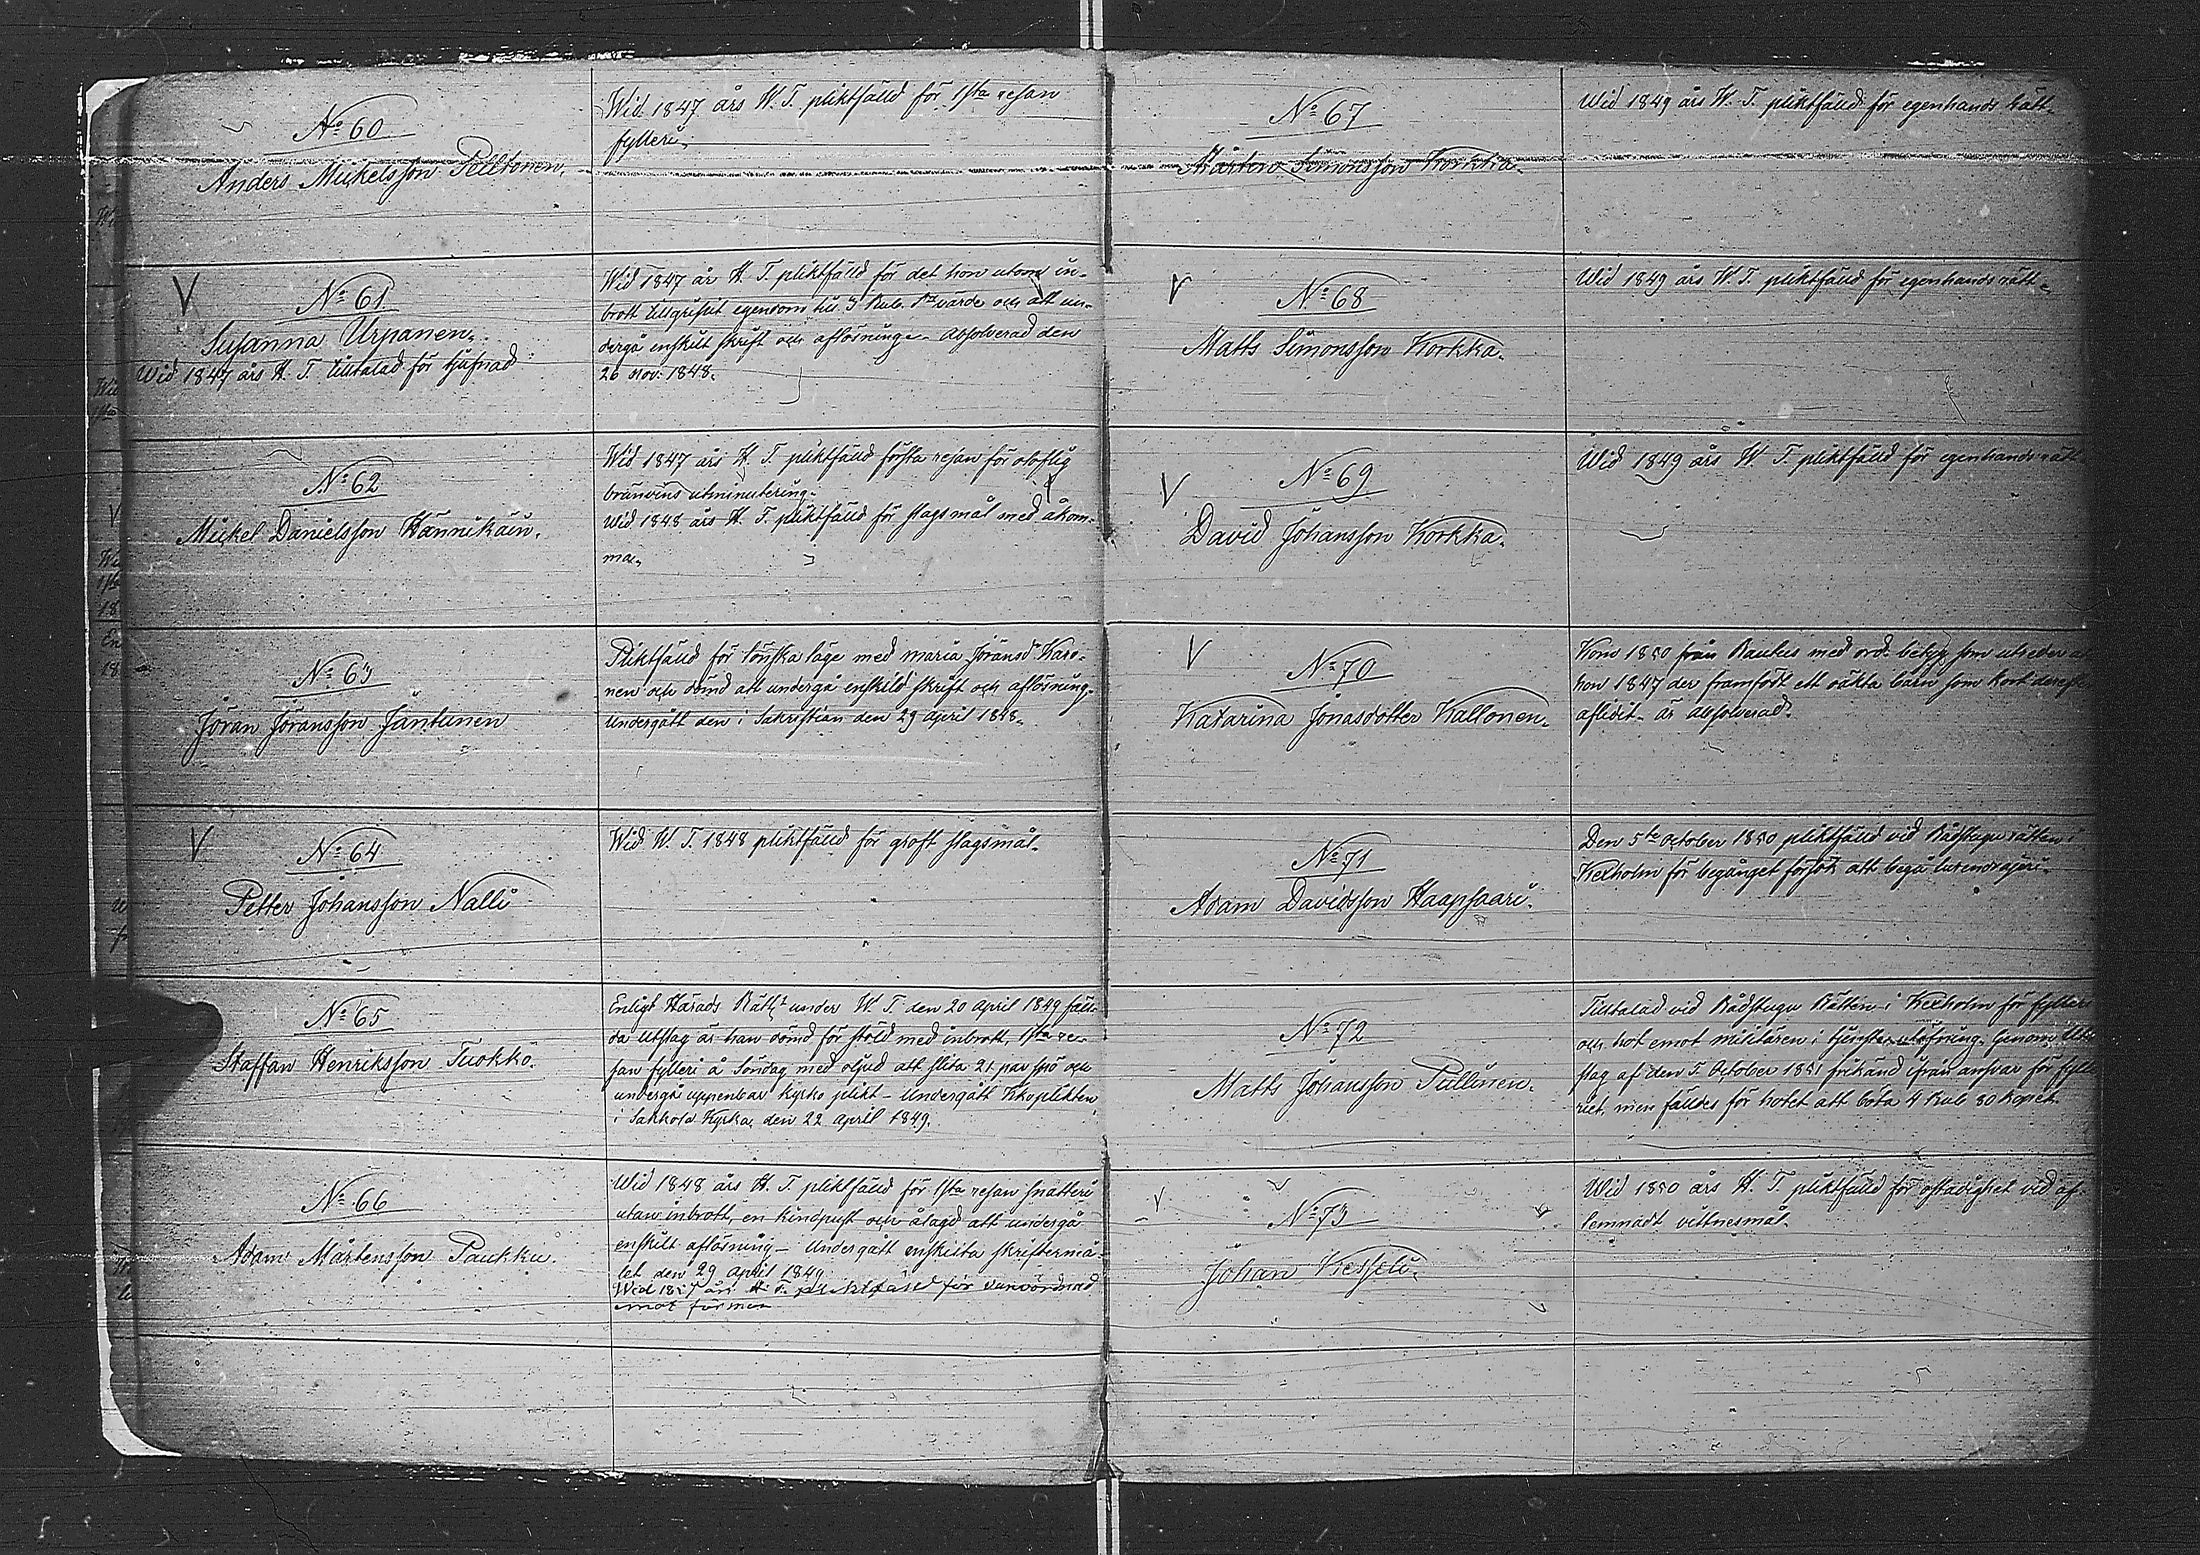 No 60
Anders Mickelsson Pelltonen.
Wid 1847 års W. T. pliktfälld för 1sta resan
fylleri.
No 61
Susanna Urpanen.
Wid 1847 års H. T. tilltalad för tjufnad
Wid 1847 år H. T. pliktfälld för det hon utom in-
brott tillgripit egendom till 3 Rub. värde och att un-
dergå enskilt skrift och aflösning. Absolverad den
26 Nov. 1848.
No 62
Mickel Danielsson Hännikäin.
Wid 1847 års H. T. pliktfälld första resan för oloflig
bränvins utminutering.
Wid 1848 års H. T. pliktfälld för slagsmål med åkom-
ma.
No 63
Jöran Jöransson Jantunen
Pliktfälld för lönska läge med Maria Jöransd Karo-
nen och dömd att undergå enskild skrift och aflösning.
Undergått den i Sakristian den 29 April 1848.
No 64
Petter Johansson Nalli
Wid W. T. 1848 pliktfälld för groft slagsmål.
No 65
Staffan Henriksson Tuokko.
Enligt Härads Rätts under W. T. den 20 April 1849 fäll-
da utslag är han dömd för stöld med inbrott, 1sta re-
san fylleri å Söndag med oljud att slita 21 par spö och
undergå uppenbar kyrko plikt - Undergått Kkoplikten
i Sakkola Kyrka, den 22 April 1849.
No 66
Adam Mårtensson Paukku.
Wid 1848 års H. T. pliktfälld för 1sta resan snatteri
utan inbrott, en kindpust och ålagd att undergå
enskilt aflösning - Undergått enskilta skriftermå-
let den 29 April 1849
Wid års H. T. pliktfäld för vanvördnad
emot förmän
No 67
Mårten Simonsson Korkka.
Wid 1849 års W. T. pliktfälld för egenhands rätt.
No 68
Matts Simonsson Korkka.
Wid 1849 års W. T. pliktfälld för egenhands rätt.
No 69
David Johansson Korkka.
Wid 1849 års W. T. pliktfälld för egenhands rätt
No 70
Katarina Jonasdotter Kallonen.
Kom 1850 från Rautus med ord. betyg som utreder a
hon 1847 der framfödt ett oäkta barn som kort dereft
aflidit - är absolverad.
No 71
Adam Davidsson Haapsaari.
Den 5te October 1850 pliktfälld vid Rådstugu rätten i
Kexholm för begånget försök att begå lurendrejeri.
No 72
Matts Johansson Pullinen.
Tilltalad vid Rådstugu Rätten i Kexholm för fylleri
och hot emot militären i tjenste utöfning. Genom Ut-
slag af den 5 October 1851 frikänd ifrån ansvar för fylle
riet, men fälldes för hotet att böta 4 Rub 80 Kopek.
No 73
Johan Kesseli.
Wid 1850 års H. T. pliktfälld för ostadighet vid af-
lemnadt vittnesmål.